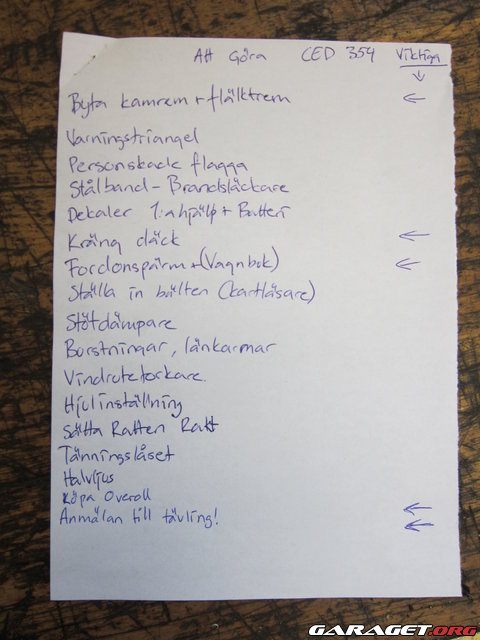 Att Göra CED 354 Viktiga
↓
Byta kamrem + fläktrem ←
Varningstriangel
Personskade flagga
Stålband - Brandsläckare
Dekaler 1:a hjälp + Batteri
Kräng däck ←
Fordonspärm + (Vagnbok) ←
Ställa in bälten (kartläsare)
Stötdämpare
Borstningar, länkarmar
Vindrutetorkare.
Hjulinställning
Sätta Ratten Rakt
Tänningslåset
Halvljus
Köpa Overoll ←
Anmälan till tävling! ←
GARAGET.ORG